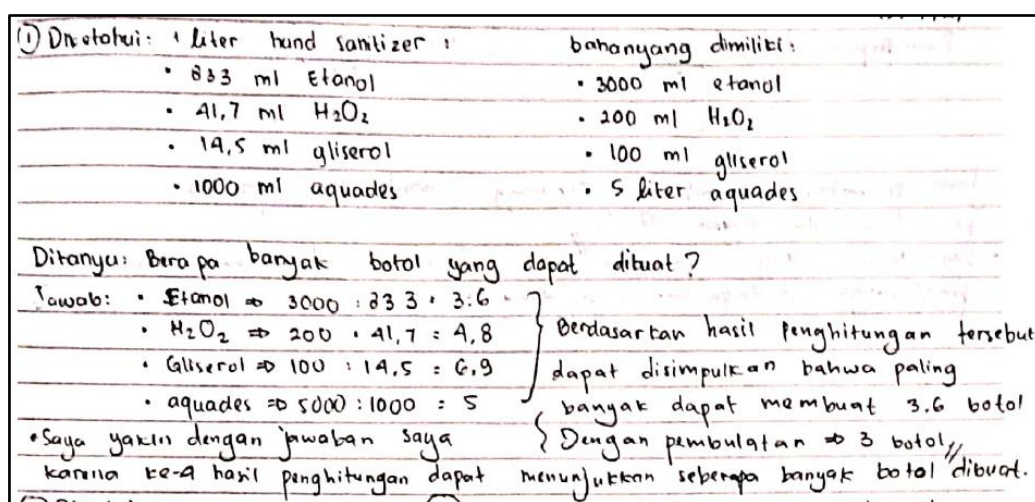 ① Diketahui: 1 liter hand sanitizer :
• 833 ml Etanol
• 41,7 ml H₂O₂
• 14,5 ml gliserol
• 1000 ml aquades
bahan yang dimiliki:
• 3000 ml etanol
• 200 ml H₂O₂
• 100 ml gliserol
• 5 liter aquades
Ditanya: Berapa banyak botol yang dapat dibuat?
Jawab: • Etanol ⇒ 3000 : 833 = 3.6
• H₂O₂ ⇒ 200 : 41,7 = 4,8
• Gliserol ⇒ 100 : 14,5 = 6,9
• aquades ⇒ 5000 : 1000 = 5
Berdasarkan hasil penghitungan tersebut
dapat disimpulkan bahwa paling
banyak dapat membuat 3.6 botol
Dengan pembulatan ⇒ 3 botol //
• Saya yakin dengan jawaban saya
karena ke-4 hasil penghitungan dapat menunjukkan seberapa banyak botol dibuat.